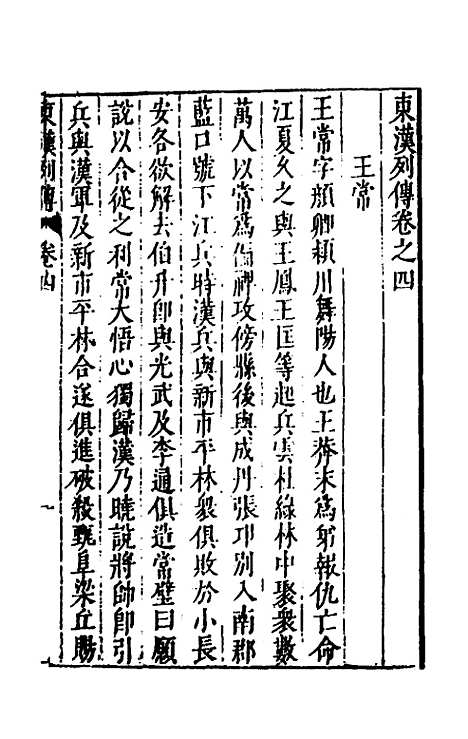 東漢列傳卷之四
王常
王常字顏卿潁川舞陽人也王莽末為弟報仇亡命
江夏久之與王鳳王匡等起兵雲杜綠林中聚衆數
萬人以常為偏裨攻傍縣後與成丹張卬別入南郡
藍口號下江兵時漢兵與新市平林衆俱敗於小長
安各欲解去伯升即與光武及李通俱造常壁曰願
說以合從之利常大悟心獨歸漢乃曉說將帥即引
兵與漢軍及新市平林合遂俱進破殺甄阜梁丘賜
東漢列傳 卷四 一